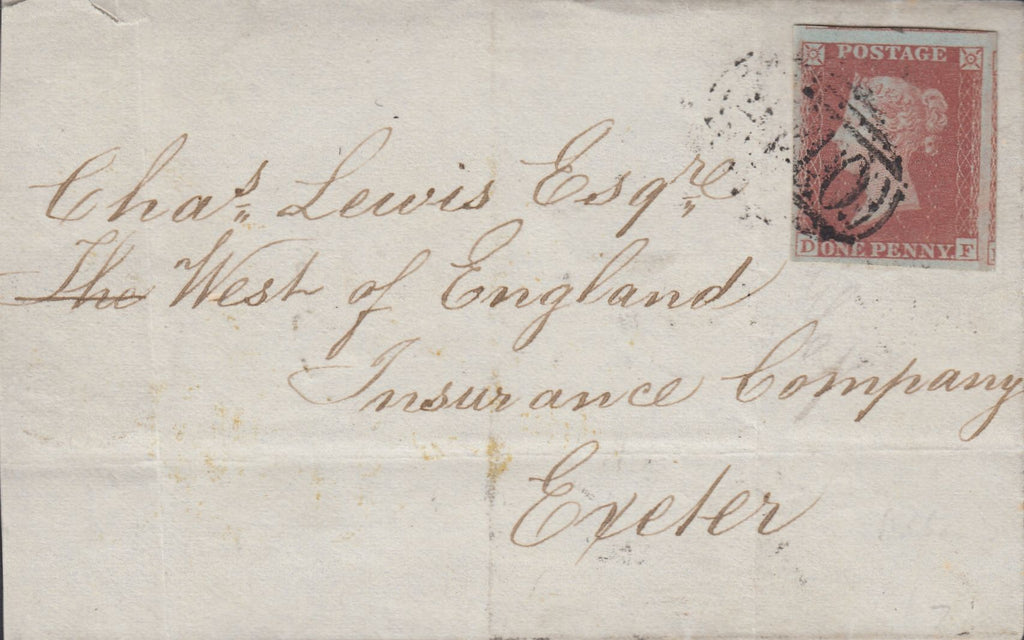 POSTAGE
D ONE PENNY F
Chas. Lewis Esqre
The West of England
Insurance Company
Exeter